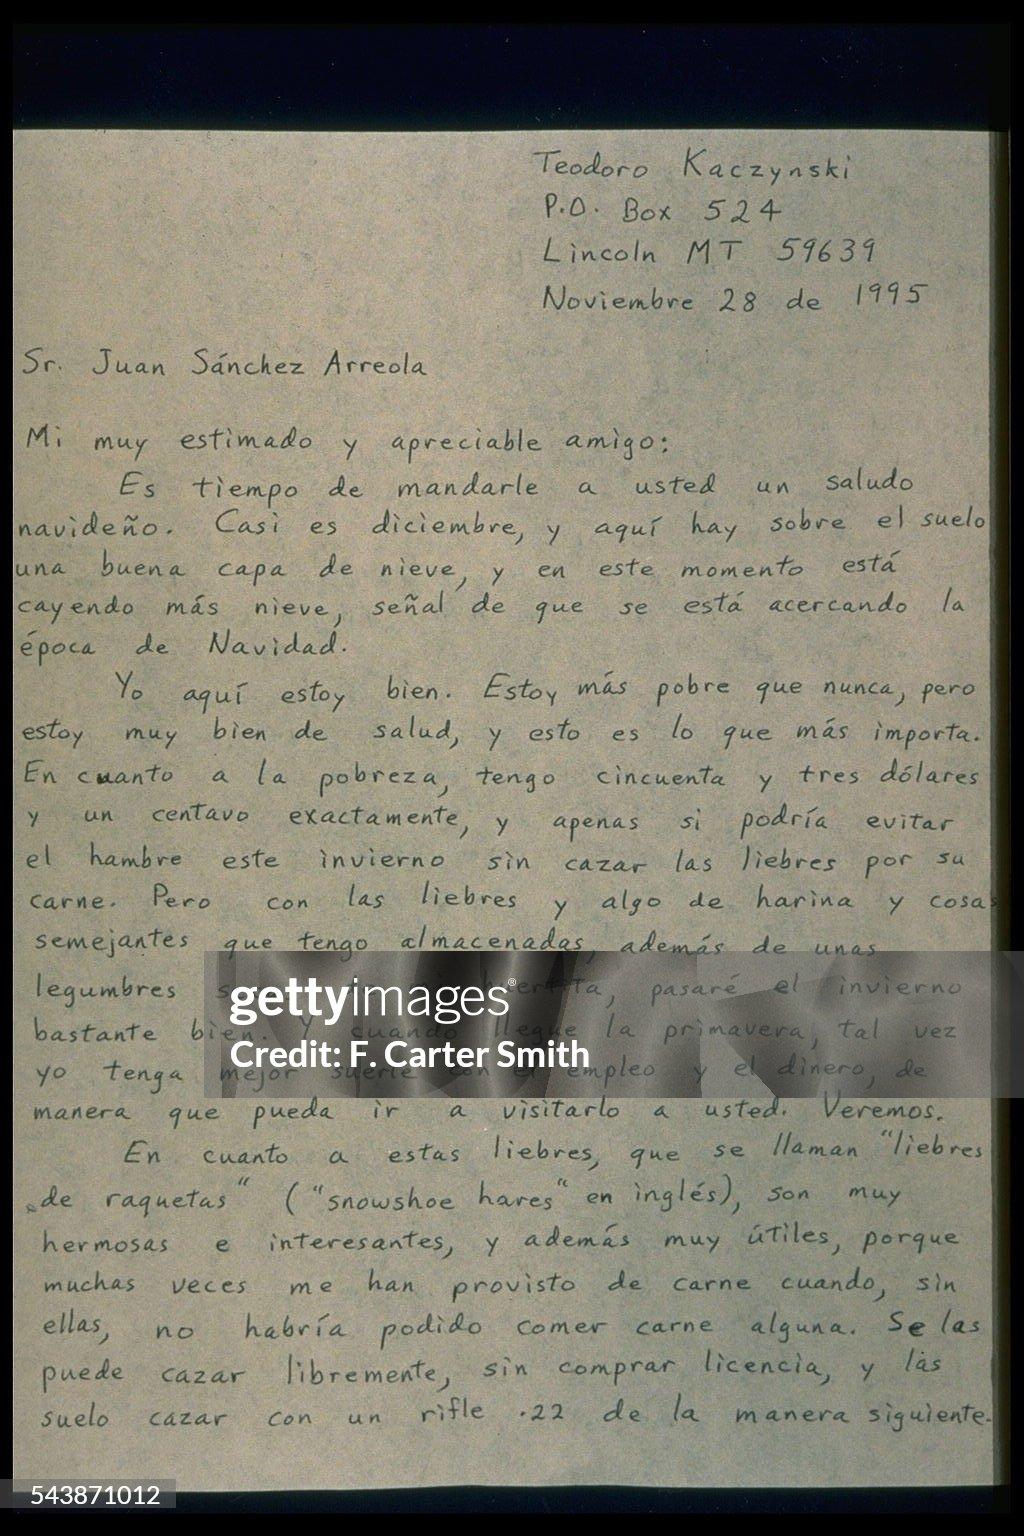 Teodoro Kaczynski
P.O. Box 524
Lincoln MT 59639
Noviembre 28 de 1995
Sr. Juan Sánchez Arreola
Mi muy estimado y apreciable amigo:
Es tiempo de mandarle a usted un saludo
navideño. Casi es diciembre, y aquí hay sobre el suelo
una buena capa de nieve, y en este momento está
cayendo más nieve, señal de que se está acercando la
época de Navidad.
Yo aquí estoy bien. Estoy más pobre que nunca, pero
estoy muy bien de salud, y esto es lo que más importa.
En cuanto a la pobreza, tengo cincuenta y tres dólares
y un centavo exactamente, y apenas si podría evitar
el hambre este invierno sin cazar las liebres por su
carne. Pero con las liebres y algo de harina y cosas
semejantes que tengo almacenadas, además de unas
legumbres huertita, pasaré el invierno
bastante bien. Y cuando llegue la primavera, tal vez
yo tenga mejor suerte con el empleo y el dinero, de
manera que pueda ir a visitarlo a usted. Veremos.
En cuanto a estas liebres, que se llaman "liebres
de raquetas" ("snowshoe hares" en inglés), son muy
hermosas e interesantes, y además muy útiles, porque
muchas veces me han provisto de carne cuando, sin
ellas, no habría podido comer carne alguna. Se las
puede cazar libremente, sin comprar licencia, y las
suelo cazar con un rifle .22 de la manera siguiente.
gettyimages®
Credit: F. Carter Smith
543871012